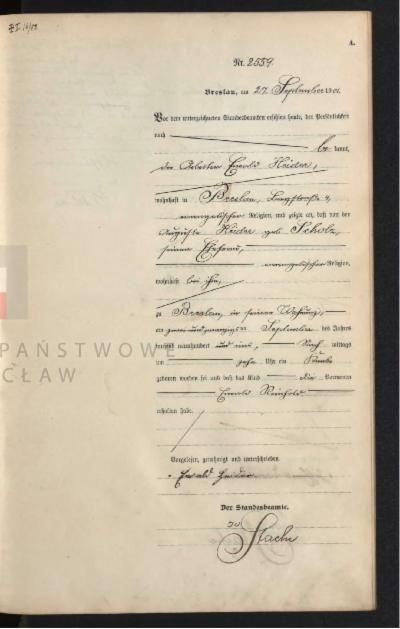 A.
Nr. 2559
Breslau, am 27. September 1901.
Vor dem unterzeichneten Standesbeamten erschien heute, der Persönlichkeit
nach be kannt,
der Arbeiter Ewald Heider,
wohnhaft in Breslau,
evangelischer Religion, und zeigte an, daß von der
Auguste Heider geb. Scholz,
seiner Ehefrau,
evangelischer Religion,
wohnhaft bei ihm,
zu Breslau, in seiner Wohnung,
am zwei und zwanzigsten September des Jahres
tausend neunhundert und eins, Nach mittags
um zehn Uhr ein Knabe
geboren worden sei und daß das Kind die Vornamen
Ewald Reinhold
erhalten habe.
Vorgelesen, genehmigt und unterschrieben
Ewald Heider
Der Standesbeamte.
Stache
PAŃSTWOWE
CŁAW